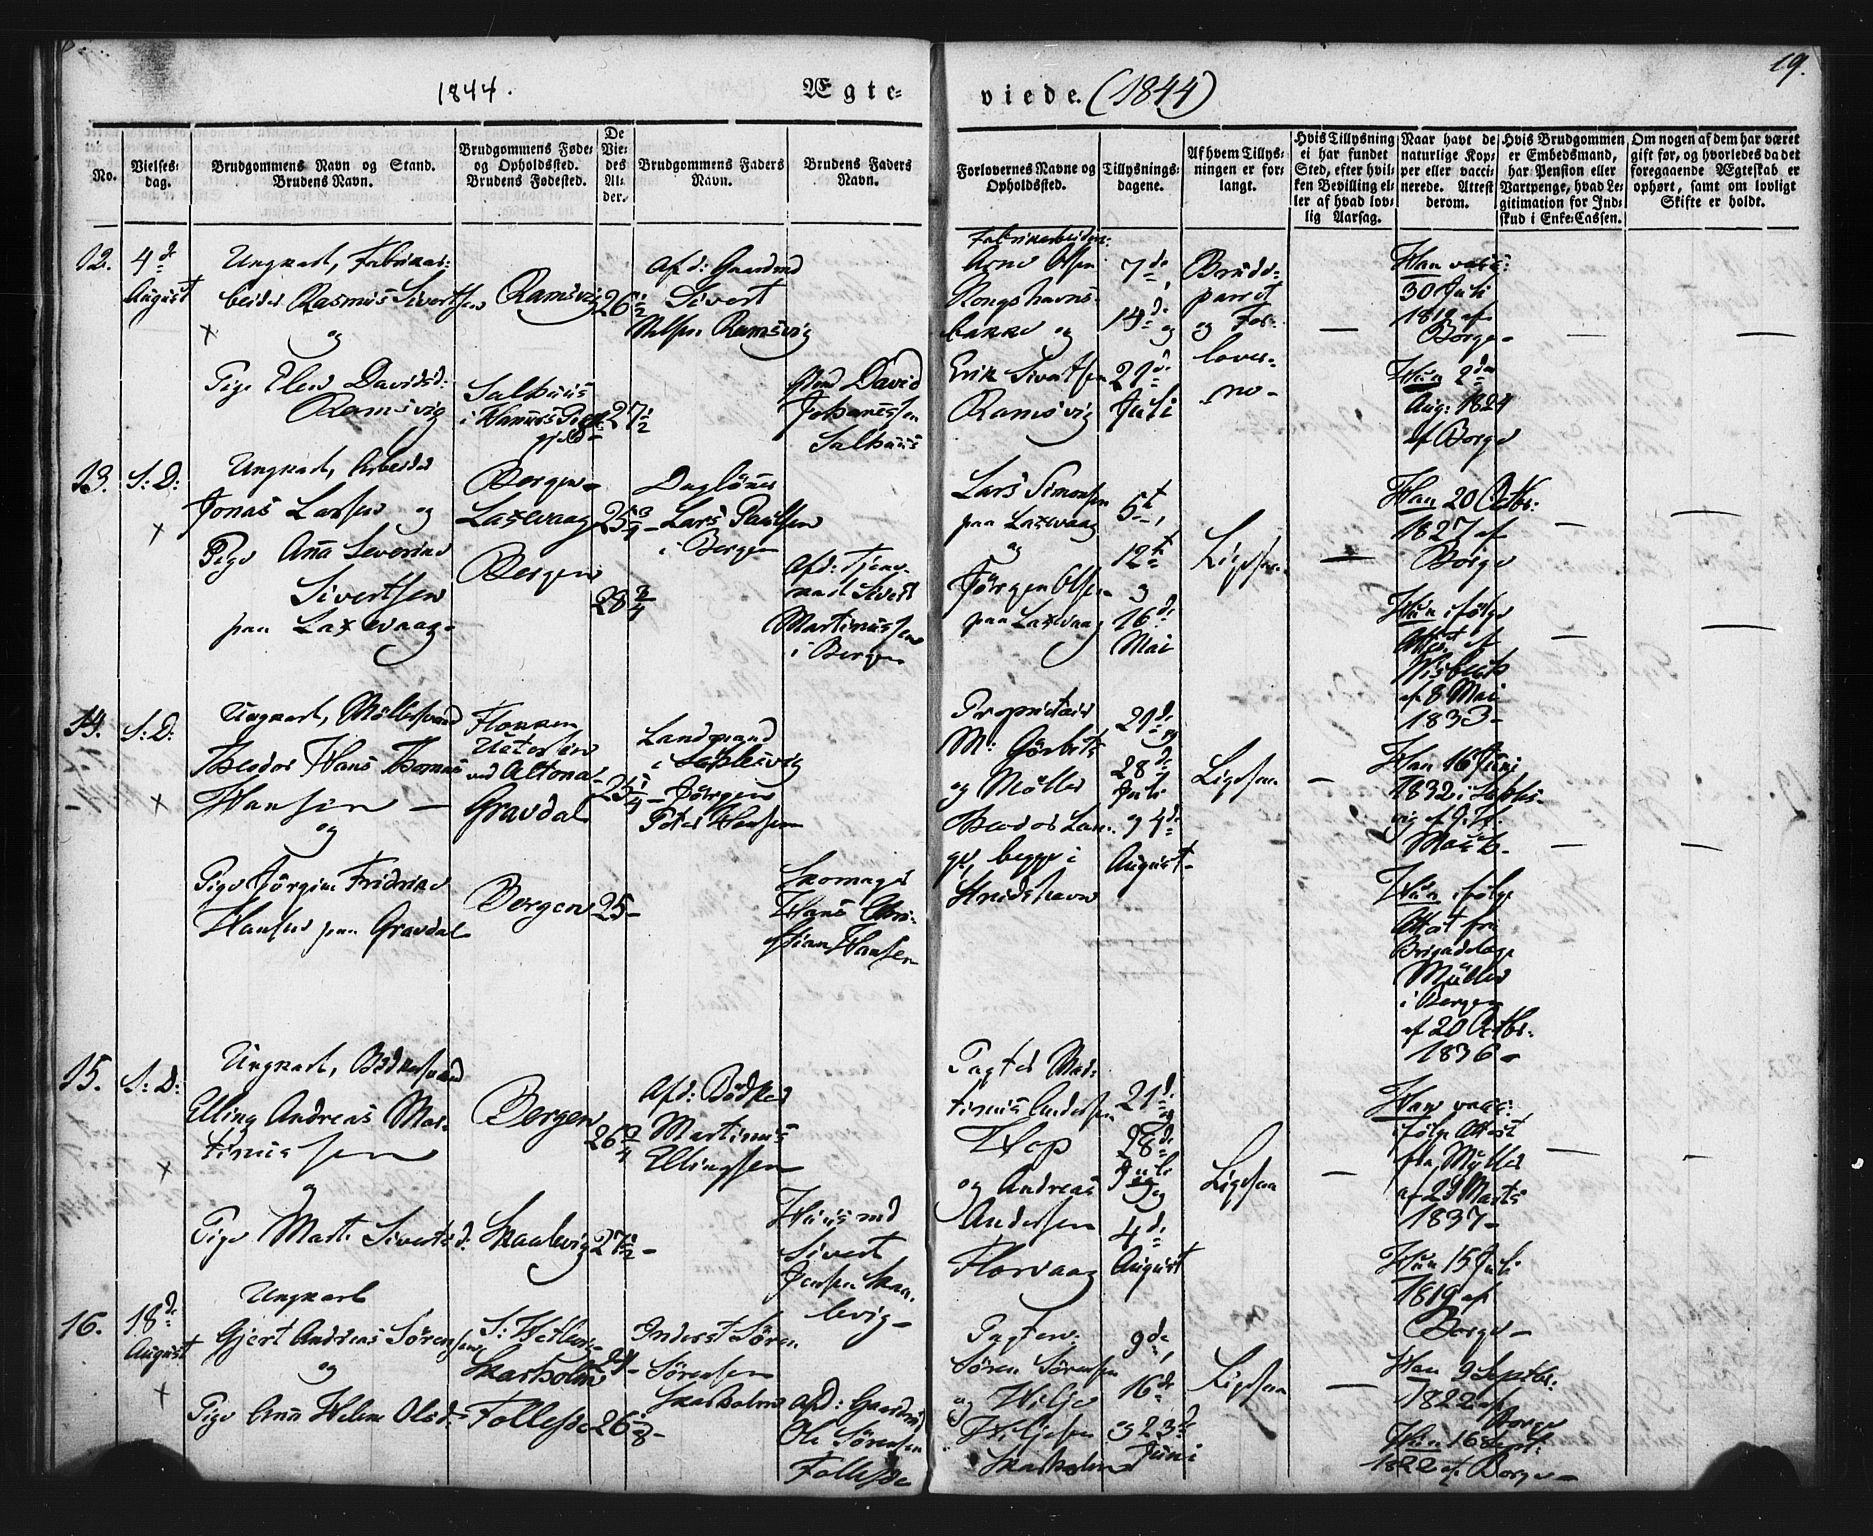 1844.
Ægte-
viede. (1844)
19.
No.
Vielses-
dag.
Brudgommens Navn og Stand.
Brudens Navn.
Brudgommens Føde-
og Opholdssted.
Brudens Fødested.
De
Vie-
des
Al-
der.
Brudgommens Faders
Navn.
Brudens Faders
Navn.
Forlovernes Navne og
Opholdssted.
Tillysnings-
dagene.
Af hvem Tillys-
ningen er for-
langt.
Hvis Tillysning
ei har fundet
Sted, efter hvil-
ken Bevilling el-
ler af hvad lov-
lig Aarsag.
Naar havt de
naturlige Kop-
per eller vacci-
nerede. Attest
derom.
Hvis Brudgommen
er Embedsmand,
har Pension eller
Vartpenge, hvad Le-
gitimation for Ind-
skud i Enke-Cassen.
Om nogen af dem har været
gift før, og hvorledes da det
foregaaende Ægteskab er
ophørt, samt om lovligt
Skifte er holdt.
12.
4de
August
Ungkarl, Fabrikar-
beider Rasmus Sivertsen
og
Pige Elen Davidsd:
Ramsvig
Ramsvig
Salhuus
i Hammers Præste-
gjeld
26 1/2
27 1/2
Afd: Gaardmd
Sivert
Nilsen Ramsvig
David
Johannessen
Salhuus
Fabrikarbeider
Arne Olsen
Kongshavns-
bakke og
Erik Sivertsen
Ramsvig
7de,
14de og
21de
Juli
Brude-
parret
og For-
lover-
ne-
Han vacc:
30 Juli
1819 af
Borge
Hun 2den
Aug: 1824
af Borge
13.
S: D:
Ungkarl, Arbeider
Jonas Larsen og
Pige Anna Severine
Sivertsen
paa Laxevaag-
Bergen-
Laxevaag
Bergen
25 3/4
28 3/4
Dagløner
Lars Paulsen
i Bergen
Afd: Tjene-
rkarl Sivert
Martinussen
i Bergen
Lars Simonsen
paa Laxevaag
og
Jørgen Olsen
paa Laxevaag
5te,
12te
og
16de
Mai
Ligesaa
Han 20 Octbr:
1827 af
Borge
Hun ifølge
Attest af
Wisbech
af 8 Mai
1833-
14.
S: D:
Ungkarl, Møllersvend
Theodor Hans Thomas
Hansen
og
Pige Jørgine Fridrike
Hansen paa Gravdal
Flekken
Uetersen
ved Altona-
Gravdal
Bergen
25 1/4
25-
Landmand
i Slesvig
Jørgen
Peter Hansen
Skomager
Hans Chri-
stian Hansen
Proprietair
M:
og Møller
Theodor Lan-
ge, begge i
21de og
28de
Juli
og 4de
August-
Ligesaa
Han 16 Juni
1832 i Slesv-
ig af
Hun ifølge
Attest fra
Brigadelæge
Müller
i Bergen
af 20 Octbr:
1836-
15.
S: D:
Ungkarl, Bødkersvend
Elling Andreas Mar-
tinussen
og
Pige Marte Sivertsd.
Bergen
Skaalevig
26 3/4
27 1/2-
Afd: Bødker
Martinus
Ellingsen
Huusmd
Sivert
Jensen Skaa-
levig-
Pagter Mar-
tinus Andersen
Hop
og Andreas
Andersen
Florvaag
21de og
28de
Juli
og
4de
August
Ligesaa
Han vacc:
ifølge Attest
fra Müller
af 29 Marts
1837-
Hun 15 Juli
1819 af
Borge-
16.
18de
August
Ungkarl
Gjert Andreas Sørensen
og
Pige Anna Helene Olsd:
Skarholm
Follesøe
24-
26 1/8-
Inderst Søren
Sørensen
Skarholmen
Afd: Gaardmd
Ole Sørensen
Follesøe
Pagtere:
Søren Sørensen
og Hilje
Hiljesen
Skarholmen
9de,
16de
og 23de
Juni
Ligesaa
Han 9 Septbr:
1822 af
Borge
Hun 16 Sept:
1822 af Borge-